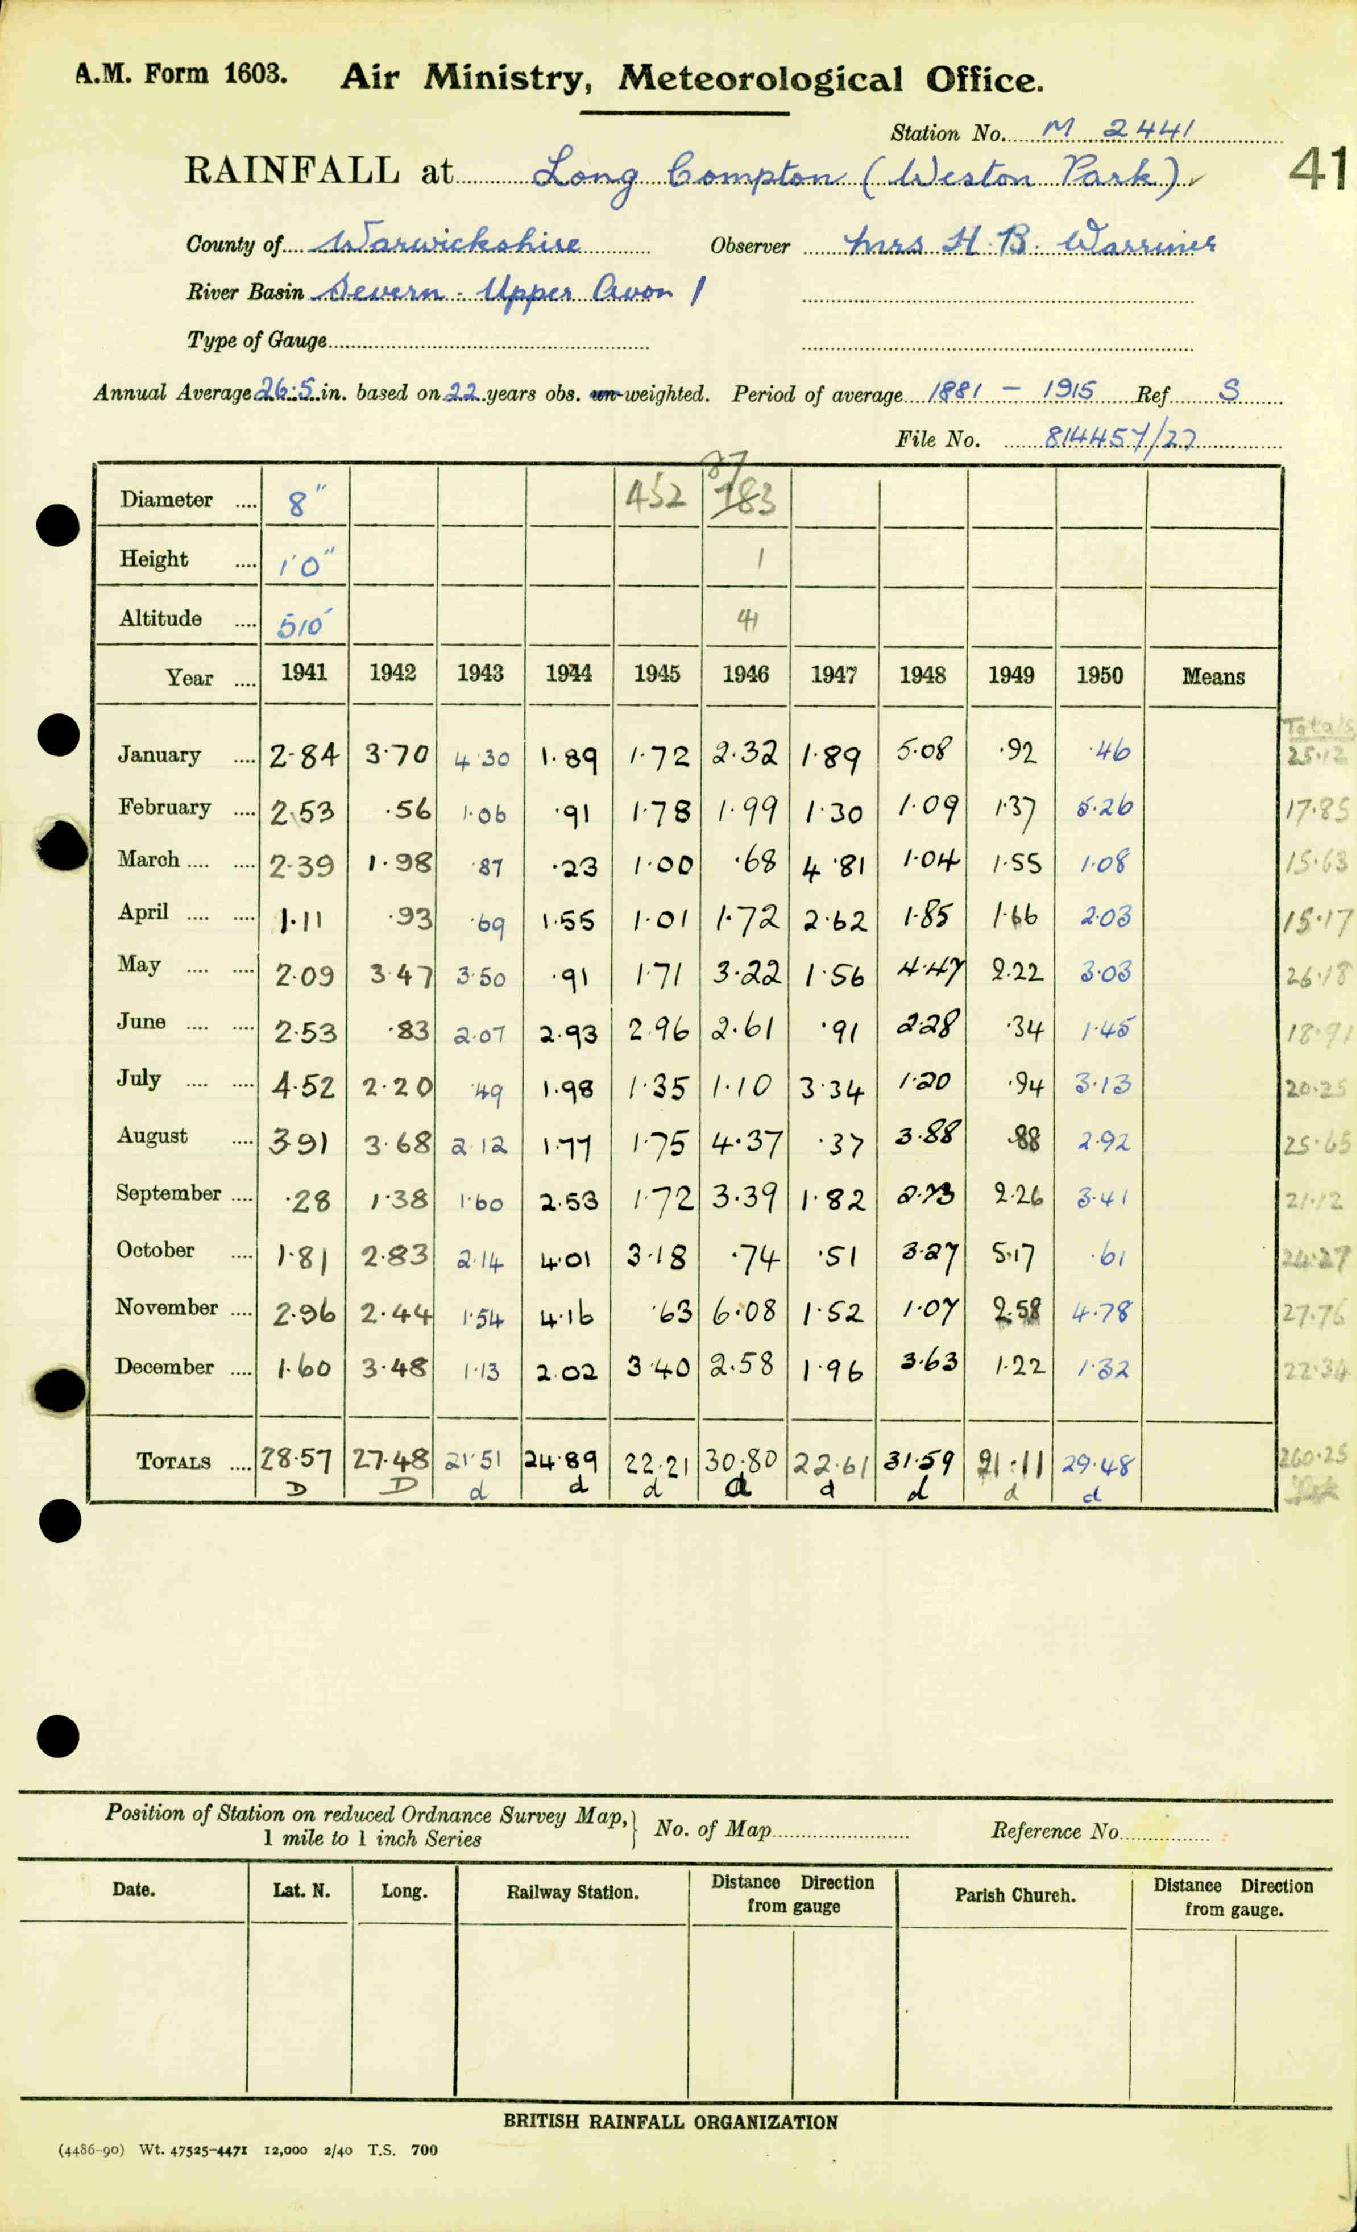 A.M. Form 1603. Air Ministry, Meteorological Office.
Station No. M 2441
41
RAINFALL at Long Compton (Weston Park)
County of Warwickshire Observer Mrs H. B. Warriner
River Basin Severn - Upper Avon 1
Type of Gauge
Annual Average 26.5 in. based on 22 years obs. un-weighted. Period of average 1881 - 1915 Ref S
File No. 814457/27
37
Diameter .... 8" 452 183
Height .... 1'0" 1
Altitude .... 510' 41
Year .... 1941 1942 1943 1944 1945 1946 1947 1948 1949 1950 Means
Totals
January .... 2.84 3.70 4.30 1.89 1.72 2.32 1.89 5.08 .92 .46 25.12
February .... 2.53 .56 1.06 .91 1.78 1.99 1.30 1.09 1.37 5.26 17.85
March .... .... 2.39 1.98 .87 .23 1.00 .68 4.81 1.04 1.55 1.08 15.63
April .... .... 1.11 .93 .69 1.55 1.01 1.72 2.62 1.85 1.66 2.03 15.17
May .... .... 2.09 3.47 3.50 .91 1.71 3.22 1.56 4.47 2.22 3.03 26.18
June .... .... 2.53 .83 2.07 2.93 2.96 2.61 .91 2.28 .34 1.45 18.91
July .... .... 4.52 2.20 .49 1.98 1.35 1.10 3.34 1.20 .94 3.13 20.25
August .... 3.91 3.68 2.12 1.77 1.75 4.37 .37 3.88 .88 2.92 25.65
September .... .28 1.38 1.60 2.53 1.72 3.39 1.82 2.73 2.26 3.41 21.12
October .... 1.81 2.83 2.14 4.01 3.18 .74 .51 3.27 5.17 .61 24.27
November .... 2.96 2.44 1.54 4.16 .63 6.08 1.52 1.07 2.58 4.78 27.76
December .... 1.60 3.48 1.13 2.02 3.40 2.58 1.96 3.63 1.22 1.32 22.34
TOTALS .... 28.57 27.48 21.51 24.89 22.21 30.80 22.61 31.59 21.11 29.48 260.25
D D d d d d d d d d
Position of Station on reduced Ordnance Survey Map, } No. of Map Reference No.
1 mile to 1 inch Series
Date. Lat. N. Long. Railway Station. Distance Direction from gauge Parish Church. Distance Direction from gauge.
BRITISH RAINFALL ORGANIZATION
(4486-90) Wt. 47525-4471 12,000 2/40 T.S. 700